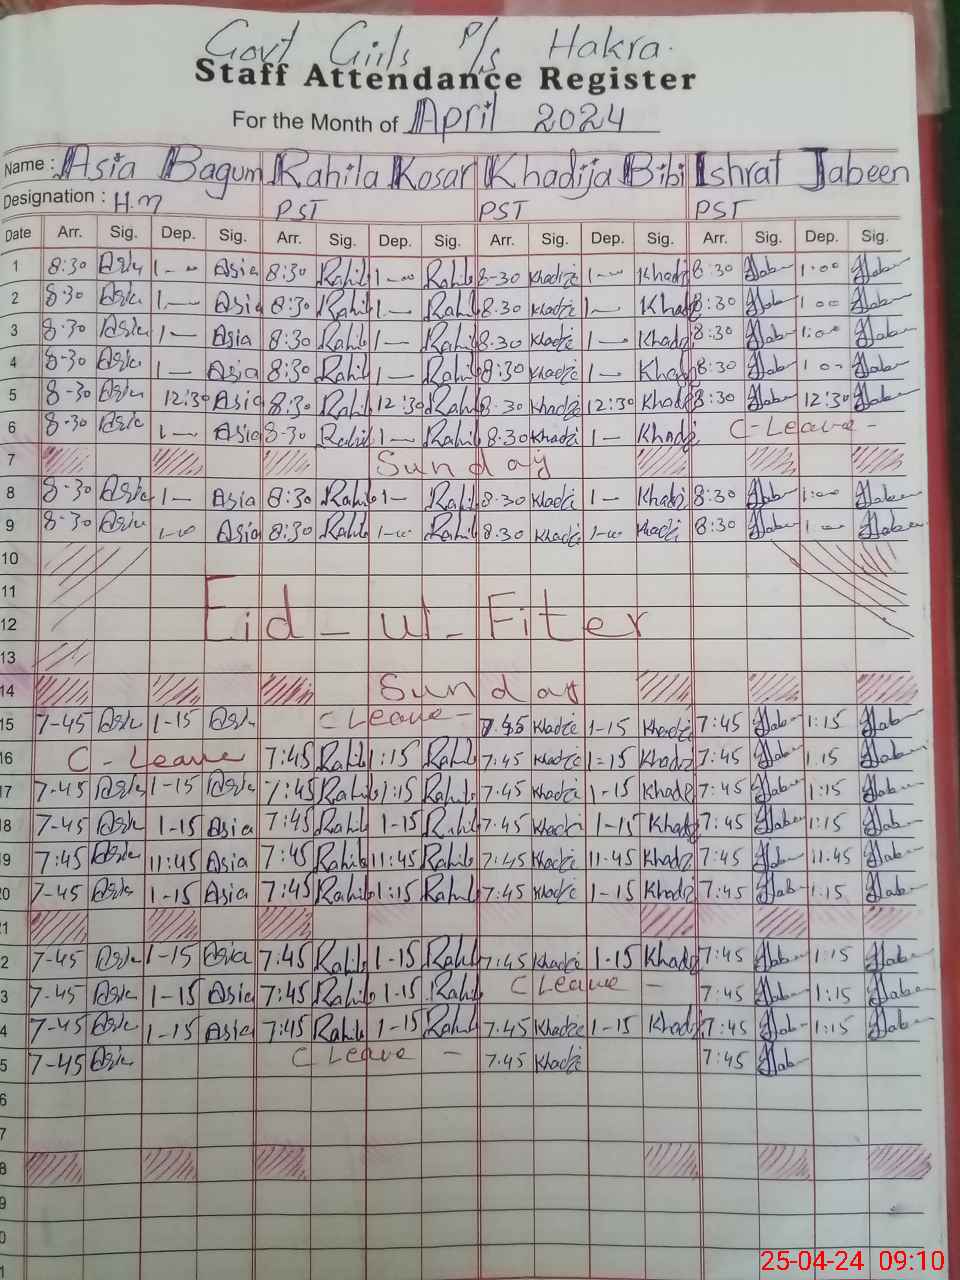 Govt Girls P/s Hakra.
Staff Attendance Register
For the Month of April 2024
Name : Asia Bagum Rahila Kosar Khadija Bibi Ishrat Jabeen
Designation : H.M PST PST PST
Date Arr. Sig. Dep. Sig. Arr. Sig. Dep. Sig. Arr. Sig. Dep. Sig. Arr. Sig. Dep. Sig.
1 8:30 Asia 1-00 Asia 8:30 Rahil 1-00 Rahil 8-30 Khadi 1-00 Khadi 8:30 Jabe 1:00 Jabe
2 8.30 Asia 1- Asia 8:30 Rahil 1- Rahil 8.30 Khadi 1- Khadi 8:30 Jabe 1 00 Jabe
3 8.30 Asia 1- Asia 8:30 Rahil 1- Rahil 8.30 Khadi 1- Khadi 8:30 Jabe 1:00 Jabe
4 8-30 Asia 1- Asia 8:30 Rahil 1- Rahil 8:30 Khadi 1- Khadi 8:30 Jabe 1 00 Jabe
5 8-30 Asia 12:30 Asia 8:30 Rahil 12:30 Rahil 8.30 Khadi 12:30 Khadi 8:30 Jabe 12:30 Jabe
6 8-30 Asia 1- Asia 8-30 Rahil 1- Rahil 8.30 Khadi 1- Khadi C-Leave-
7 Sunday
8 8-30 Asia 1- Asia 8:30 Rahil 1- Rahil 8.30 Khadi 1- Khadi 8:30 Jabe 1:00 Jabe
9 8-30 Asia 1-00 Asia 8:30 Rahil 1-00 Rahil 8.30 Khadi 1-00 Khadi 8:30 Jabe 1 00 Jabe
10
11
Eid-ul-Fiter
12
13
14 Sunday
15 7-45 Asia 1-15 Asia C Leave- 7.45 Khadi 1-15 Khadi 7:45 Jabe 1:15 Jabe
16 C-Leave 7:45 Rahil 1:15 Rahil 7:45 Khadi 1-15 Khadi 7:45 Jabe 1.15 Jabe
17 7-45 Asia 1-15 Asia 7:45 Rahil 1:15 Rahil 7.45 Khadi 1-15 Khadi 7:45 Jabe 1:15 Jabe
18 7-45 Asia 1-15 Asia 7:45 Rahil 1-15 Rahil 7.45 Khadi 1-15 Khadi 7:45 Jabe 1:15 Jabe
19 7:45 Asia 11:45 Asia 7:45 Rahil 11:45 Rahil 7:45 Khadi 11-45 Khadi 7:45 Jabe 11.45 Jabe
20 7-45 Asia 1-15 Asia 7:45 Rahil 1:15 Rahil 7:45 Khadi 1-15 Khadi 7:45 Jabe 1:15 Jabe
21
2 7-45 Asia 1-15 Asia 7:45 Rahil 1-15 Rahil 7:45 Khadi 1-15 Khadi 7:45 Jabe 1:15 Jabe
3 7-45 Asia 1-15 Asia 7:45 Rahil 1-15 Rahil C Leave - 7:45 Jabe 1:15 Jabe
4 7-45 Asia 1-15 Asia 7:45 Rahil 1-15 Rahil 7.45 Khadi 1-15 Khadi 7:45 Jabe 1:15 Jabe
5 7-45 Asia C Leave - 7.45 Khadi 7:45 Jabe
6
7
8
9
0
1
25-04-24 09:10